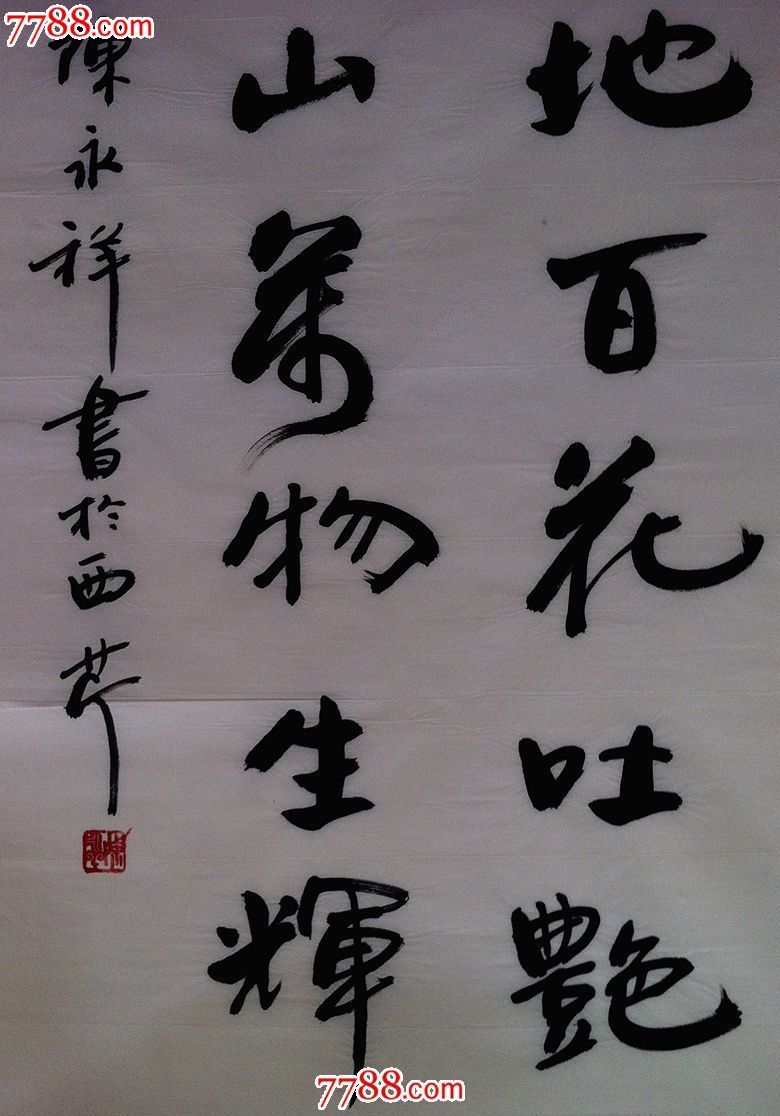 7788.com
地百花吐艷
山萬物生輝
陳永祥書於西芹
7788.com